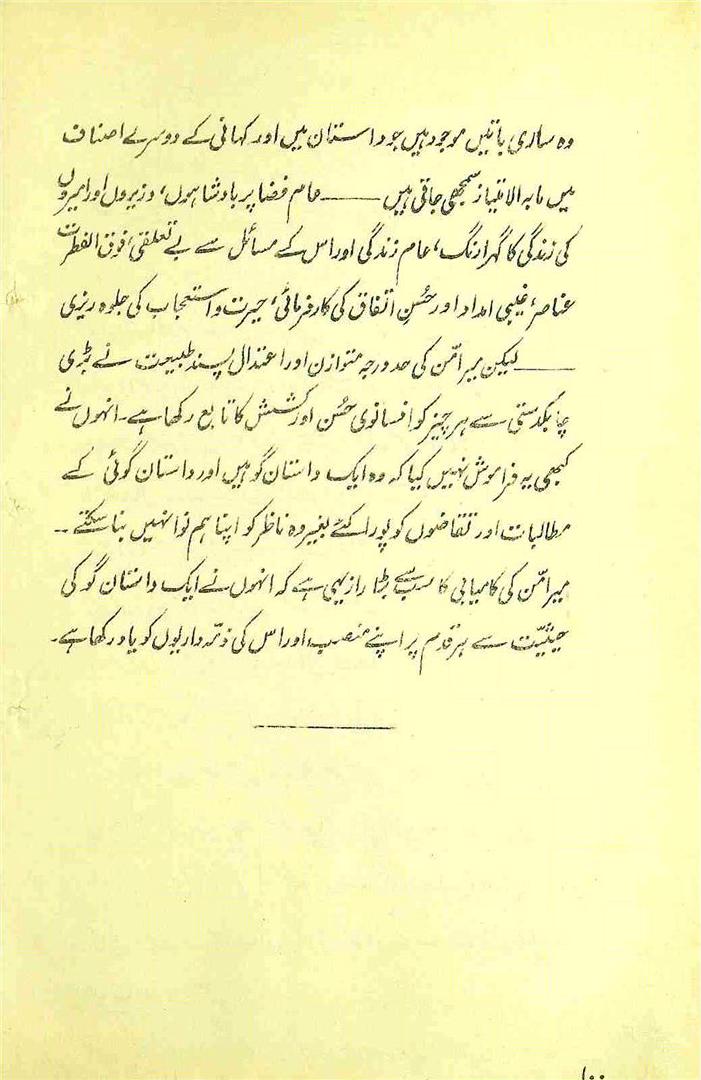 وہ ساری باتیں موجود ہیں جو داستان میں اور کہانی کے دوسرے اصناف
میں مابہ الامتیاز سمجھی جاتی ہیں ——— عام فضا پر بادشاہوں، وزیروں اور امیروں
کی زندگی کا گہرا رنگ، عام زندگی اور اس کے مسائل سے بے تعلقی، فوق الفطرت
عناصر، غیبی امداد اور حُسنِ اتفاق کی کارفرمائی، حیرت و استعجاب کی جلوہ ریزی
——— لیکن میرامّن کی حد درجہ متوازن اور اعتدال پسند طبیعت نے بڑی
چابکدستی سے ہر چیز کو افسانوی حُسن اور کشش کا تابع رکھا ہے۔ انہوں نے
کبھی یہ فراموش نہیں کیا کہ وہ ایک داستان گو ہیں اور داستان گوئی کے
مطالبات اور تقاضوں کو پورا کئے بغیر وہ ناظر کو اپنا ہم نوا نہیں بنا سکتے ۔۔
میرامّن کی کامیابی کا سب سے بڑا راز یہی ہے کہ انہوں نے ایک داستان گو کی
حیثیّت سے ہر قدم پر اپنے منصب اور اس کی ذمّہ داریوں کو یاد رکھا ہے۔
۱۰۰